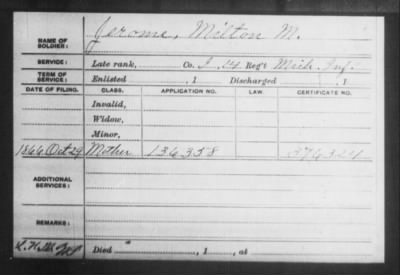 NAME OF SOLDIER: Jerome, Milton M.
SERVICE: Late rank, Co. I. 14 Reg't Mich. Inf.
TERM OF SERVICE: Enlisted , 1 Discharged , 1
DATE OF FILING. CLASS. APPLICATION NO. LAW. CERTIFICATE NO.
Invalid,
Widow,
Minor,
1866 Oct 29 Mother 136358 376324
ADDITIONAL SERVICES:
REMARKS:
Died , 1 , at